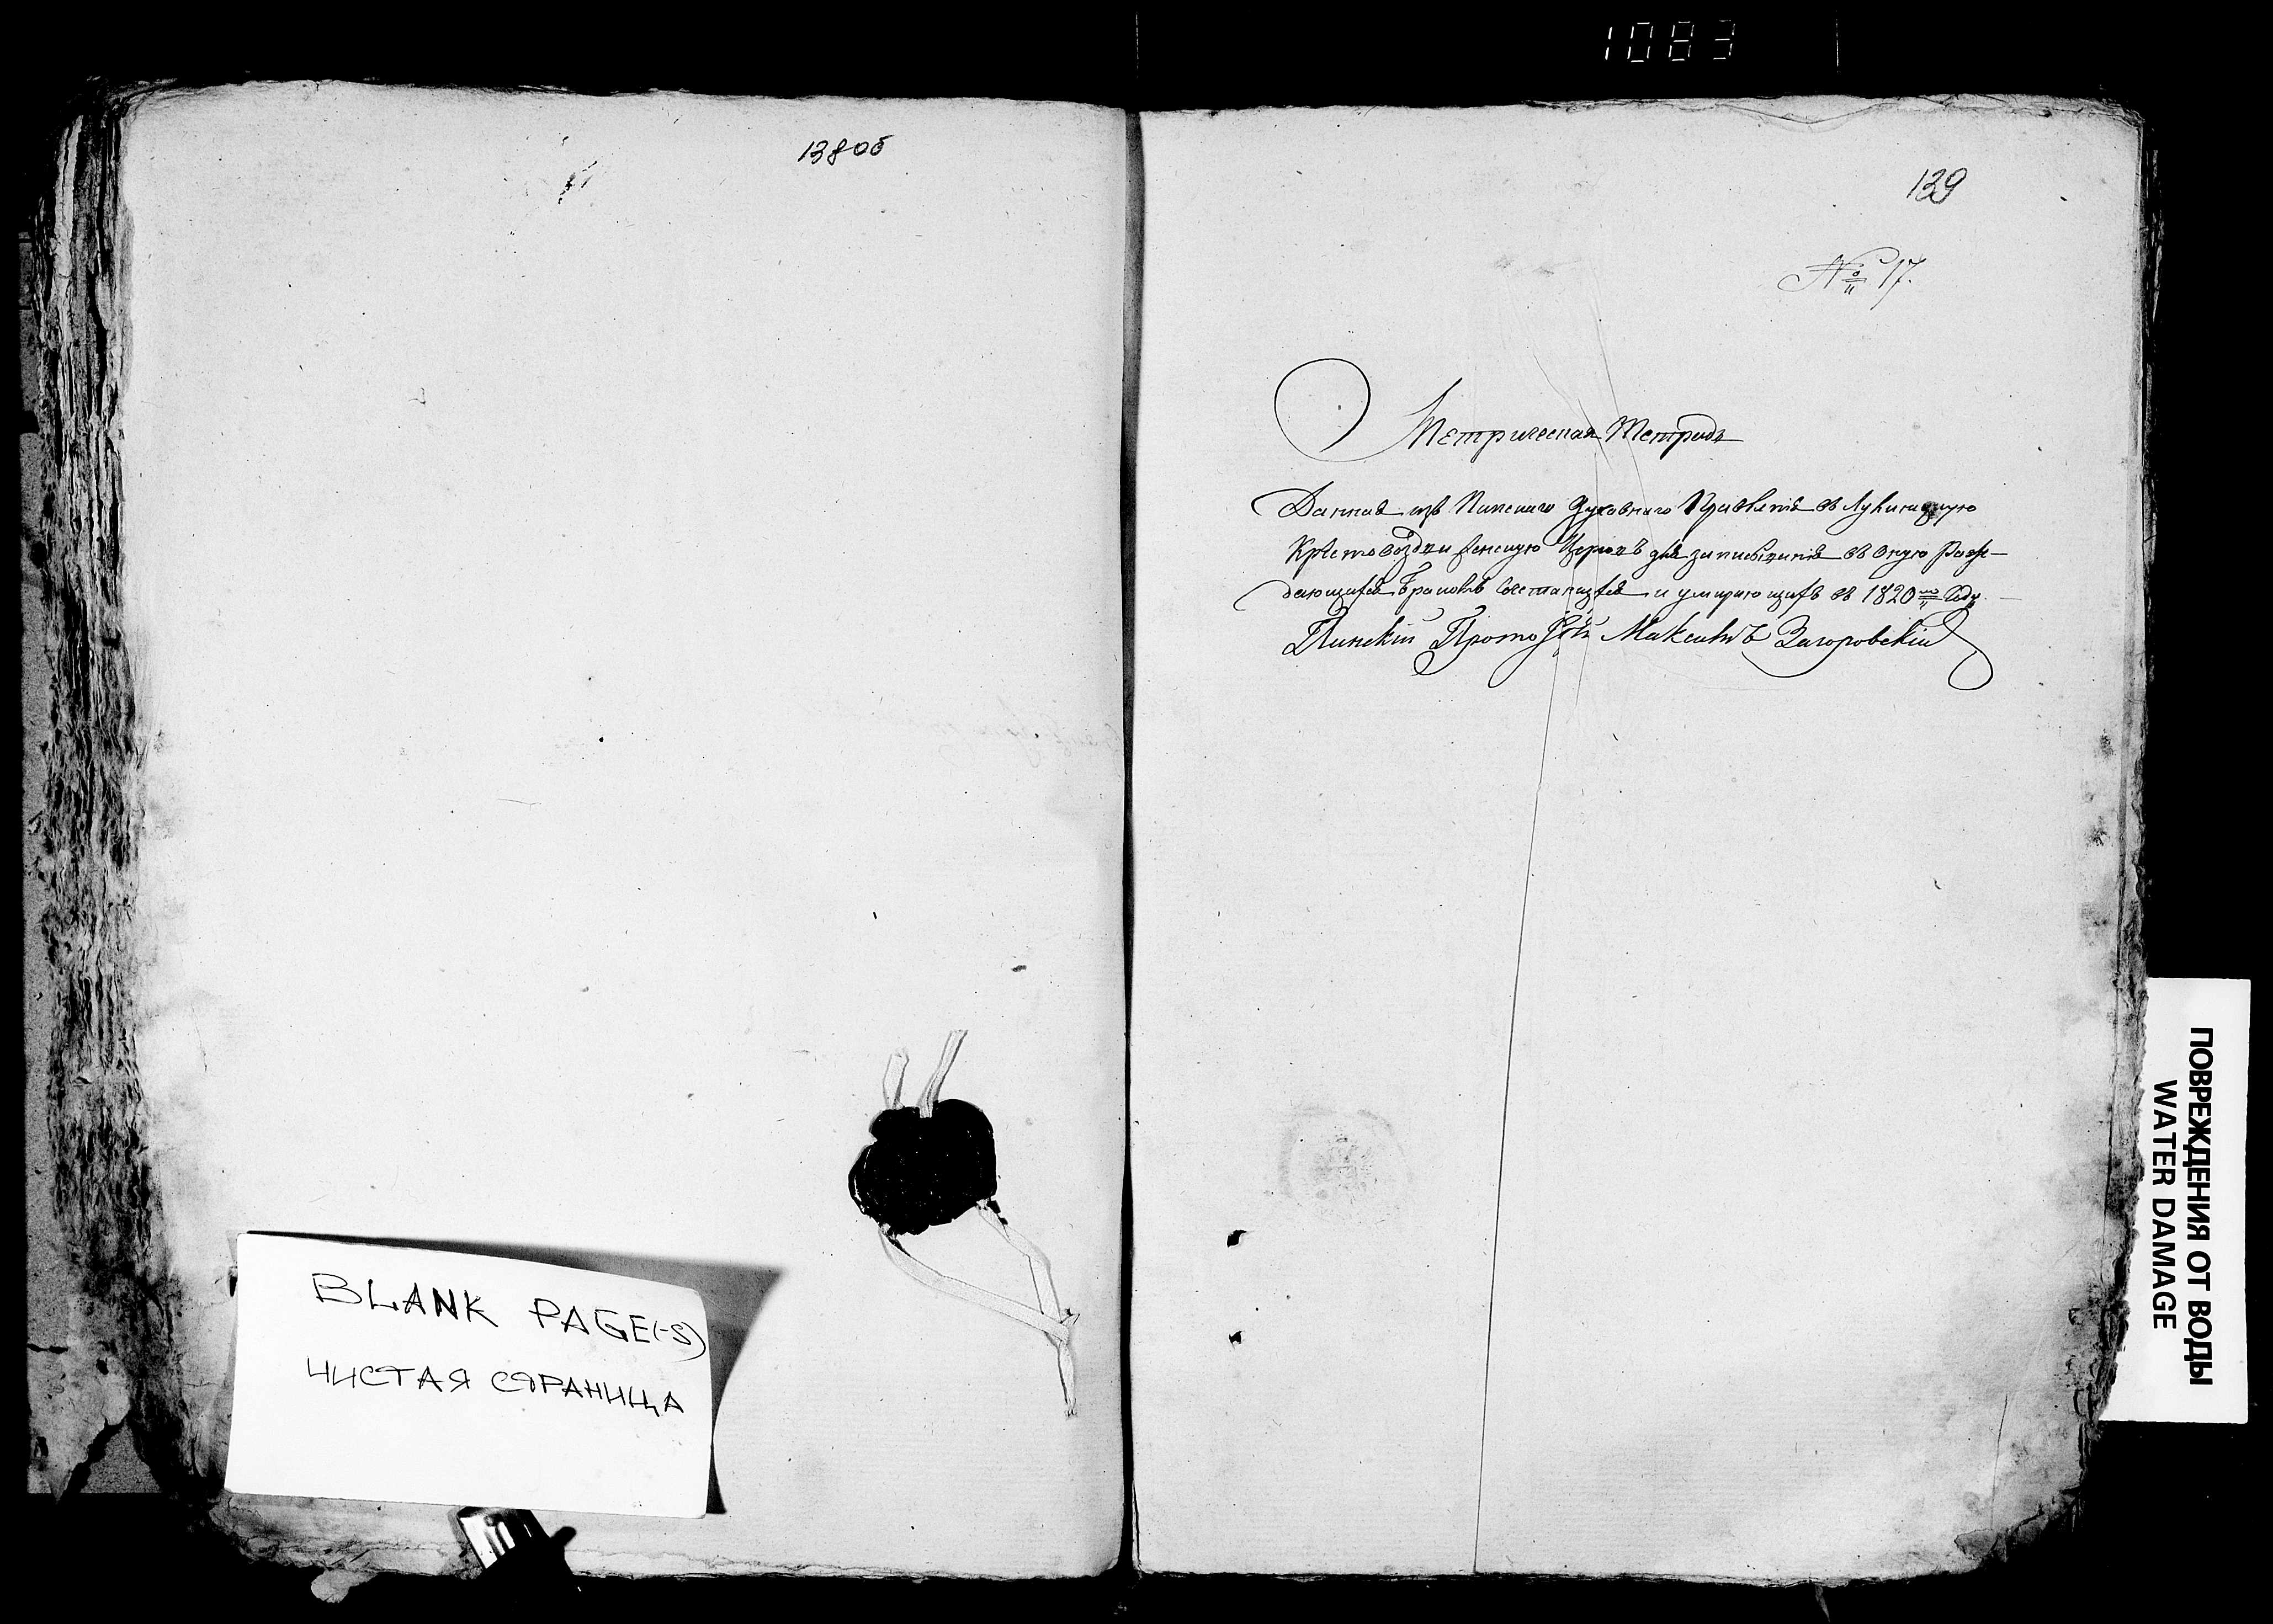 1083
138об
139
№ 17.
Метрическая Тетрадь
Данная изъ Пинскаго Духовнаго Правленія въ
Кресто воздвиженскую Церковь для записыванія въ оную рож-
дающихся браковъ и умирающихъ въ 1820мъ Году
Пинскій Протоіерей Максимъ Загоровскій
BLANK PAGE(-S)
ЧИСТАЯ СТРАНИЦА
ПОВРЕЖДЕНИЯ ОТ ВОДЫ
WATER DAMAGE